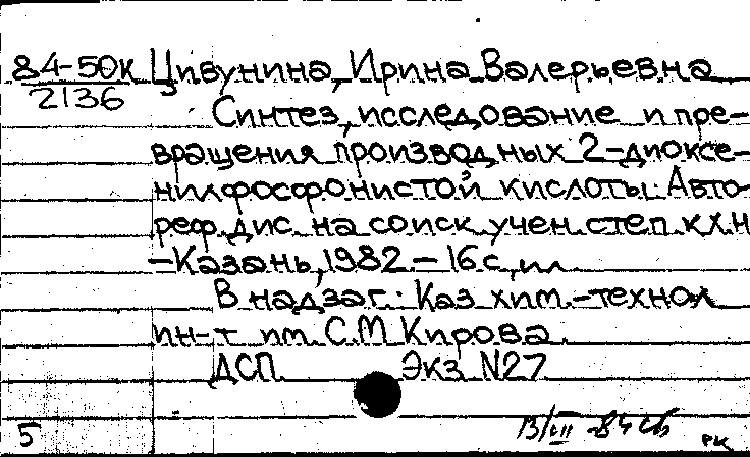 84-50к Цивунина, Ирина Валерьевна
2136
Синтез, исследование и пре-
вращения производных 2-диоксе-
нилфосфонистой кислоты: Авто-
реф. дис. на соиск. учен. степ. к.х.н.
-Казань, 1982.-16 с., ил.
В надзаг.: Каз. хим.-технол.
ин-т им. С.М. Кирова.
ДСП. Экз. N27
13/III-84
5
РК